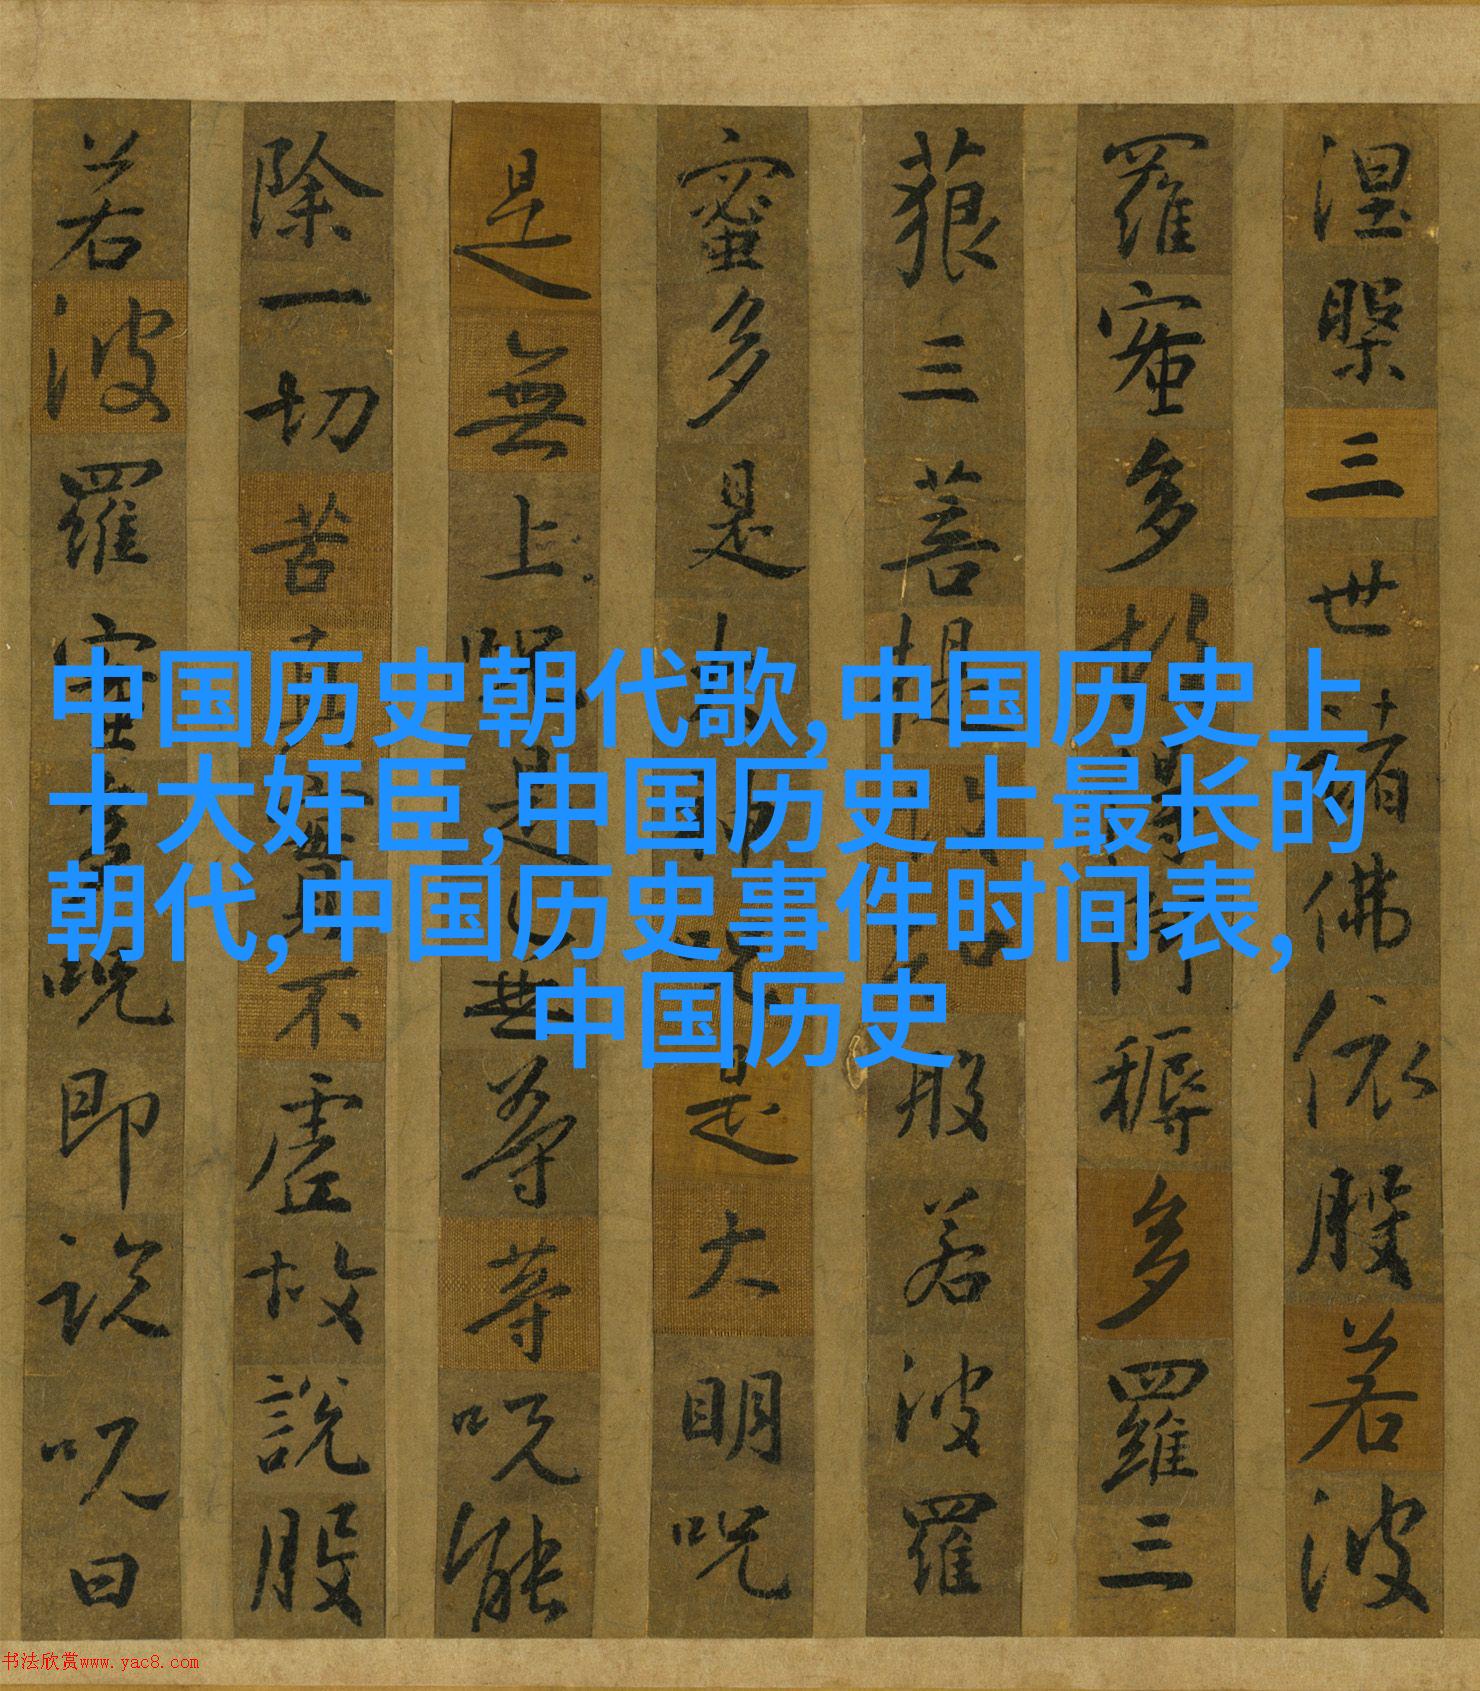 涅槃三世諸佛依般若波
羅蜜多故得阿耨多羅三
藐三菩提故知般若波羅
蜜多是大神呪是大明呪
是無上呪是無等等呪能
除一切苦真實不虛故說般
若波羅蜜多呪即說呪曰
中国历史朝代歌,中国历史上
十大奸臣,中国历史上最长的
朝代,中国历史事件时间表,
中国历史
书法欣赏www.yac8.com